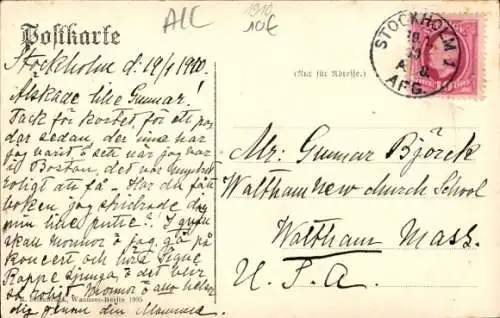 AK
1910
10€
Postkarte
(Nur für Adresse.)
STOCKHOLM 1
AFG.
Stockholm d. 19/1 1910.
Älskade lille Gunnar!
Tack för kortet för ett par
dar sedan, der hvar
jag varit å sett när jag var
i Boston, det var
roligt att få - Har du fått
boken jag skickade dig
min lille putte?! I
skall Mormor å jag gå på
konsert och höra Signe
Rappe sjunga, å det blir
så roligt Mormor å alla helsar
dig genom din Mamma
Mr. Gunnar Björck
Waltham New church School
Waltham Mass.
U. S. A.
Wannsee-Berlin 1905